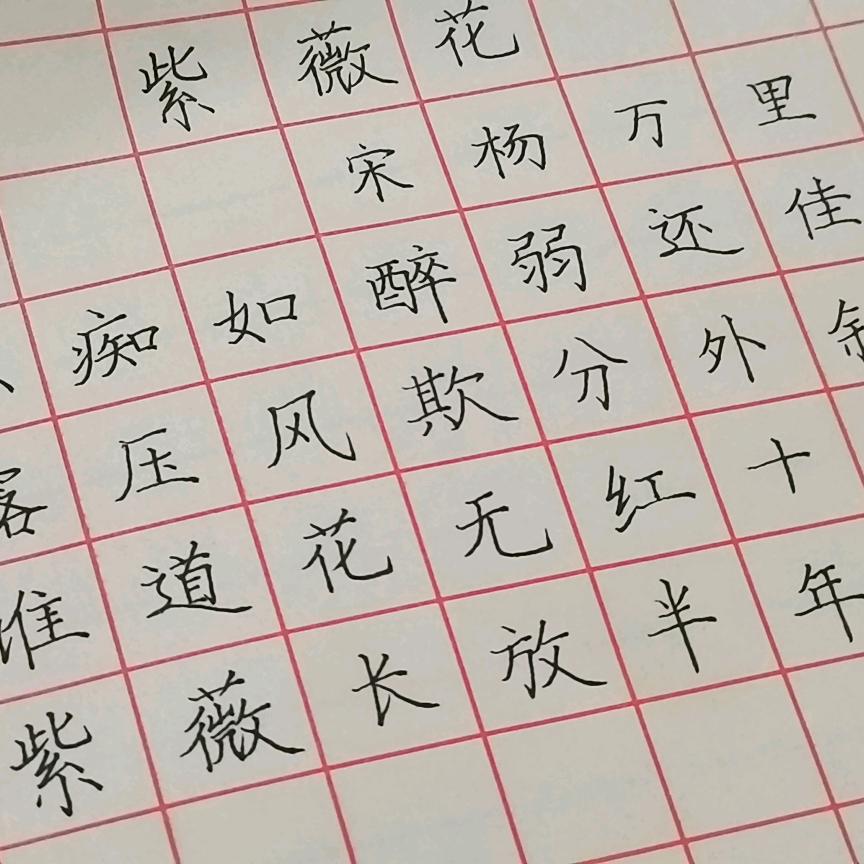 紫薇花
宋杨万里
痴如醉弱还佳
压风欺分外
谁道花无红十
紫薇长放半年